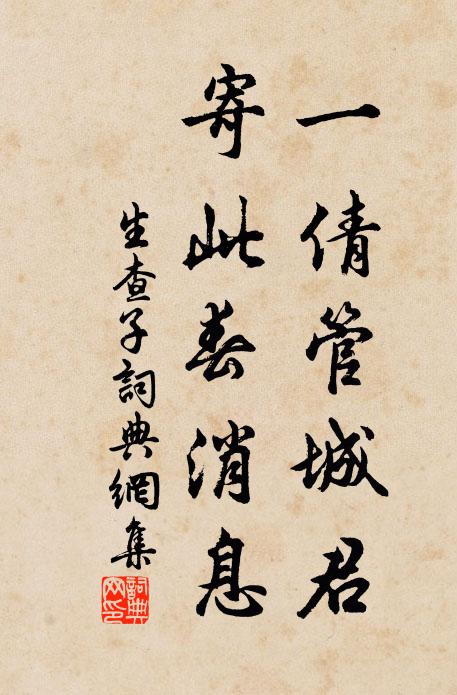 一倩管城君
寄此春消息
生查子詞典網集
詞典網印